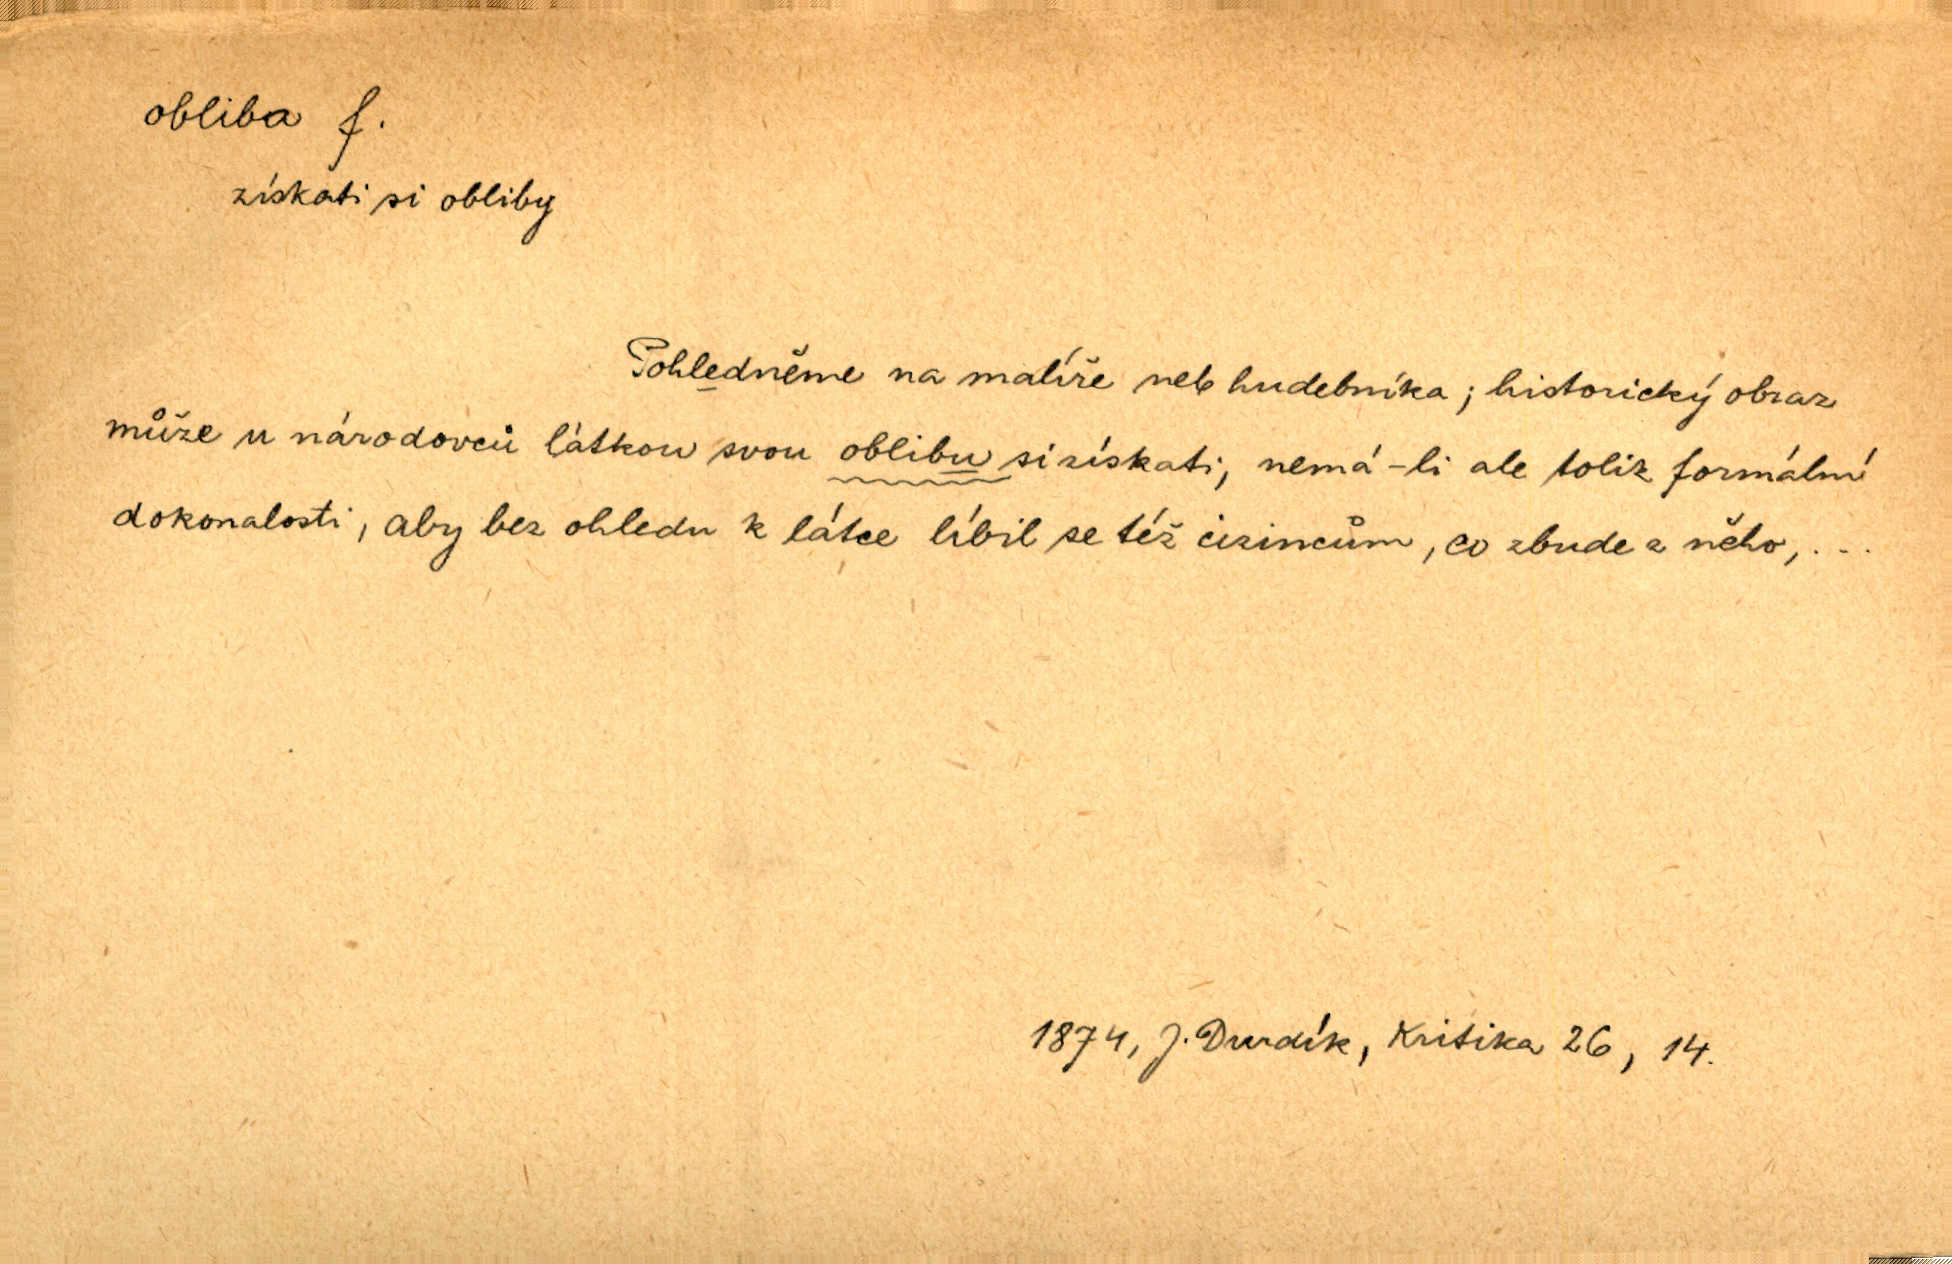 obliba f.
získati si obliby
Pohledněme na malíře neb hudebníka; historický obraz
může u národovců látkou svou oblibu si získati, nemá-li ale tolik formální
dokonalosti, aby bez ohledu k látce líbil se též cizincům, co zbude z něho,...
1874, J. Durdík, Kritika 26, 14.